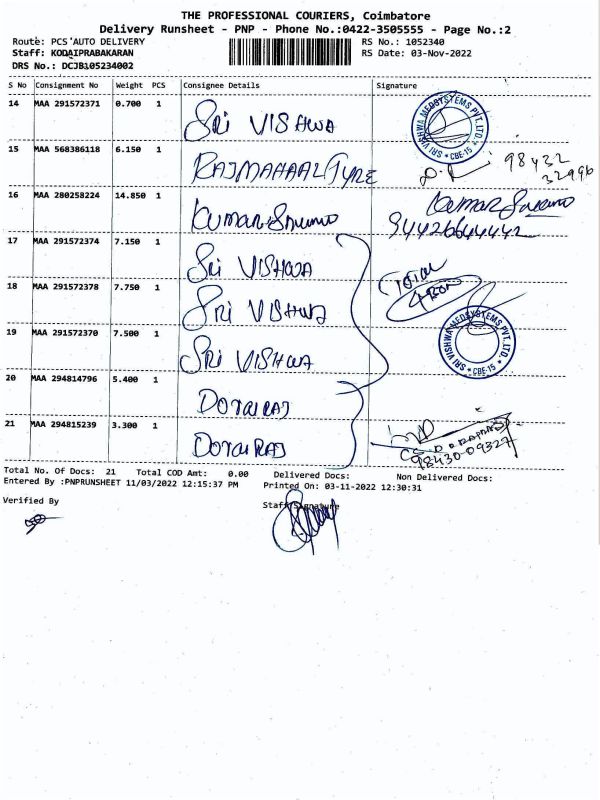 THE PROFESSIONAL COURIERS, Coimbatore
Delivery Runsheet - PNP - Phone No.:0422-3505555 - Page No.:2
Route: PCS AUTO DELIVERY
RS No.: 1052340
Staff: KODAIPRABAKARAN
RS Date: 03-Nov-2022
DRS No.: DCJB105234002
S No Consignment No Weight PCS Consignee Details Signature
14 MAA 291572371 0.700 1 Sri VISHWA
SRI VISHWA MEDSYSTEMS PVT.LTD. * CBE-15 *
15 MAA 568386118 6.150 1 RAJMAHAAL TYRE
98432
32996
16 MAA 280258224 14.850 1 Kumar
Kumar
9442664442
17 MAA 291572374 7.150 1 Sri VISHWA
Total
4 Box
18 MAA 291572378 7.750 1 Sri VISHWA
19 MAA 291572370 7.500 1 Sri VISHWA
SRI VISHWA MEDSYSTEMS PVT.LTD. * CBE-15 *
20 MAA 294814796 5.400 1 DORAIRAJ
21 MAA 294815239 3.300 1 DORAIRAJ
98430-09327
Total No. Of Docs: 21 Total COD Amt: 0.00 Delivered Docs: Non Delivered Docs:
Entered By :PNPRUNSHEET 11/03/2022 12:15:37 PM Printed On: 03-11-2022 12:30:31
Verified By
Staff Signature